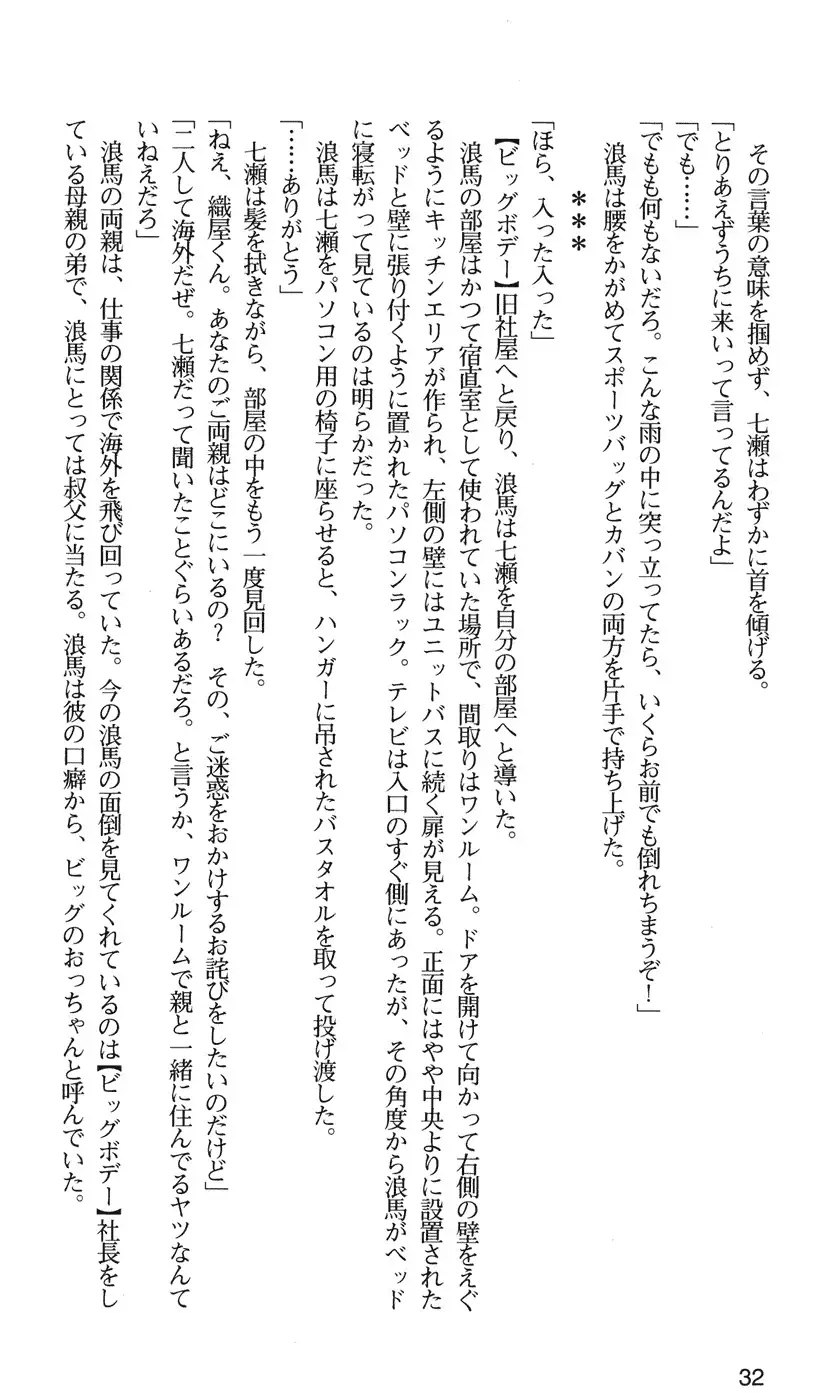 その言葉の意味を掴めず、七瀬はわずかに首を傾げる。
「とりあえずうちに来いって言ってるんだよ」
「でも……」
「でもも何もないだろ。こんな雨の中に突っ立ってたら、いくらお前でも倒れちまうぞ！」
　浪馬は腰をかがめてスポーツバッグとカバンの両方を片手で持ち上げた。
＊＊＊
「ほら、入った入った」
　【ビッグボデー】旧社屋へと戻り、浪馬は七瀬を自分の部屋へと導いた。
　浪馬の部屋はかつて宿直室として使われていた場所で、間取りはワンルーム。ドアを開けて向かって右側の壁をえぐ
るようにキッチンエリアが作られ、左側の壁にはユニットバスに続く扉が見える。正面にはやや中央よりに設置された
ベッドと壁に張り付くように置かれたパソコンラック。テレビは入口のすぐ側にあったが、その角度から浪馬がベッド
に寝転がって見ているのは明らかだった。
　浪馬は七瀬をパソコン用の椅子に座らせると、ハンガーに吊されたバスタオルを取って投げ渡した。
「……ありがとう」
　七瀬は髪を拭きながら、部屋の中をもう一度見回した。
「ねえ、織屋くん。あなたのご両親はどこにいるの？　その、ご迷惑をおかけするお詫びをしたいのだけど」
「二人して海外だぜ。七瀬だって聞いたことぐらいあるだろ。と言うか、ワンルームで親と一緒に住んでるヤツなんて
いねえだろ」
　浪馬の両親は、仕事の関係で海外を飛び回っていた。今の浪馬の面倒を見てくれているのは【ビッグボデー】社長をし
ている母親の弟で、浪馬にとっては叔父に当たる。浪馬は彼の口癖から、ビッグのおっちゃんと呼んでいた。
32